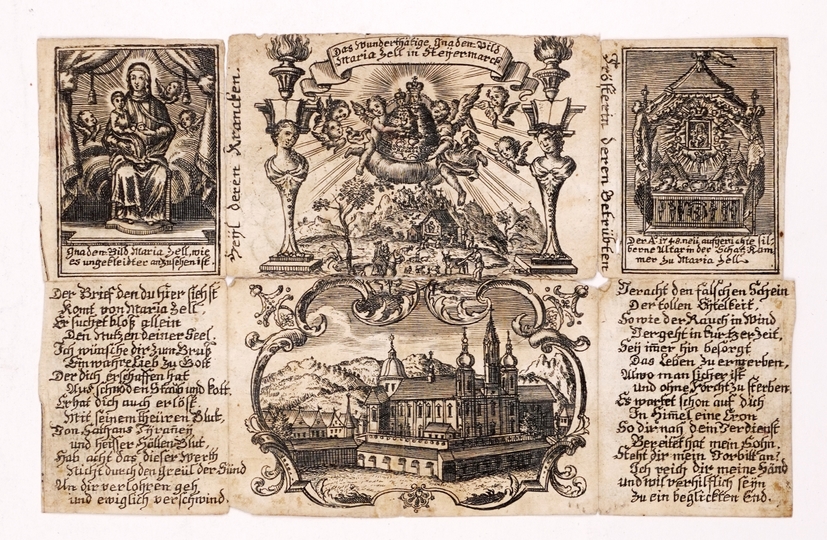 Das Wunderthätige Gnaden Bild
Maria Zell in Steyermarck
Heyl deren Krancken.
Trösterin deren Betrübten
Gnaden-Bild Maria Zell, wie
es ungekleidter anzusehen ist.
Der A: 1748. neü aufgerichte sil-
berne Altar in der Schatz Kam-
mer zu Maria Zell.
Der Brief den du hier sichst
Komt von Maria Zell.
Er suchet bloß allein
Den Nutzen deiner Seel.
Ich wünsche dir zum Gruß
Ein wahre Lieb zu Gott
Der dich erschaffen hat
Aus schnöden Staub und Kott.
Er hat dich auch erlöst
Mit seinem theüren Blut,
Von Sathans Tyraney
und heisser Höllen Glut,
Hab acht das dieser Werth
Nicht durch den Greül der Sünd
An dir verlohren geh
und ewiglich verschwind.
Veracht den falschen Schein
Der tollen Eytelkeit.
So wie der Rauch in Wind
Vergeht in kurtzer Zeit,
Sey im̄er hin besorgt
Das Leben zu erwerben,
Alwo man sicher ist
und ohne Forcht zu sterben.
Es wartet schon auf dich
In Himel eine Cron
So dir nach dein Verdienst
Bereitet hat mein Sohn.
Steht dir mein Vorbitt an?
Ich reich dir meine Händ
und wil verhilflich seyn
Zu ein beglickten End.